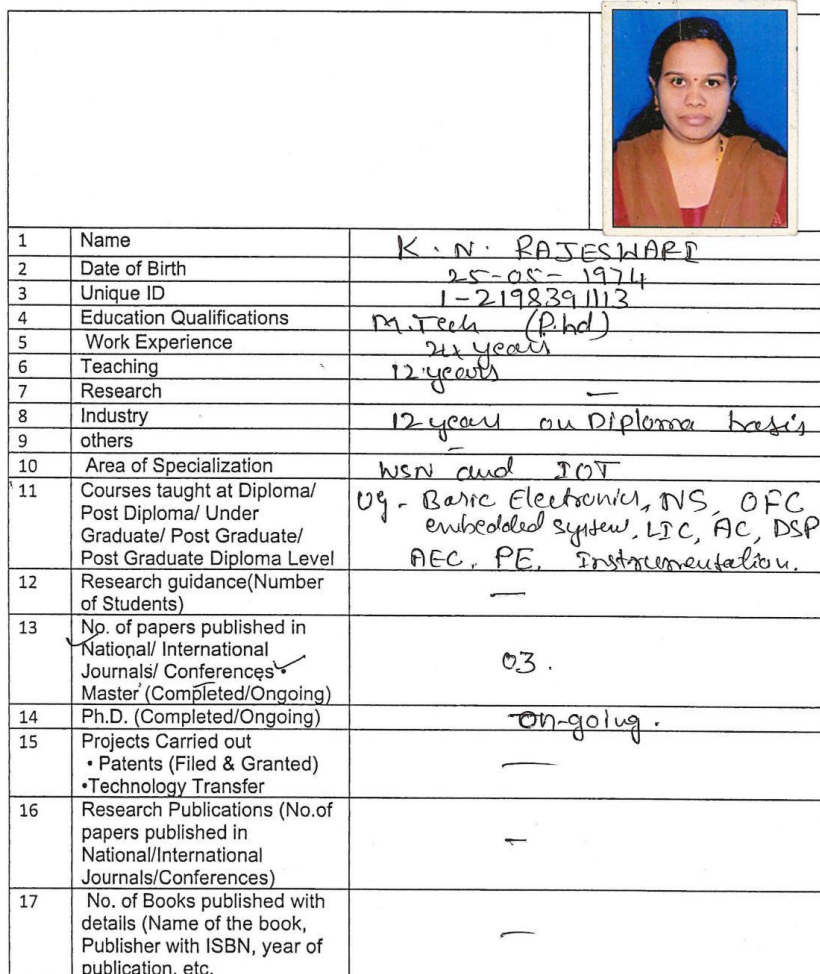 1 Name K. N. RAJESWARI
2 Date of Birth 25-05-1974
3 Unique ID 1-2198391113
4 Education Qualifications M.Tech (P.hd)
5 Work Experience 24 years
6 Teaching 12 years
7 Research —
8 Industry 12 years on Diploma basis
9 others –
10 Area of Specialization WSN and IOT
11 Courses taught at Diploma/ UG - Basic Electronics, NS, OFC
Post Diploma/ Under embedded system, LIC, AC, DSP
Graduate/ Post Graduate/ AEC, PE, Instrumentation.
Post Graduate Diploma Level
12 Research guidance(Number —
of Students)
13 No. of papers published in
National/ International
Journals/ Conferences 03.
Master (Completed/Ongoing)
14 Ph.D. (Completed/Ongoing) on-going.
15 Projects Carried out
• Patents (Filed & Granted) —
•Technology Transfer
16 Research Publications (No.of
papers published in –
National/International
Journals/Conferences)
17 No. of Books published with
details (Name of the book, —
Publisher with ISBN, year of
publication, etc.